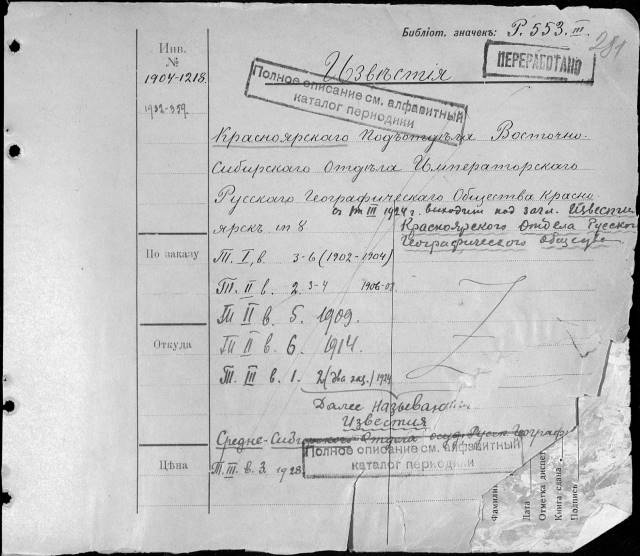 Библіот. значекъ: Р. 553. III
281
Инв.
№
1904-1218.
1932-359.
ПЕРЕРАБОТАНО
Извѣстія
Полное описание см. алфавитный
каталог периодики
Красноярскаго Подъотдѣла Восточно-
Сибирскаго Отдѣла Императорскаго
Русскаго Географическаго Общества Красно
ярскъ in 8
с т III 1924 г. выходит под загл. Известия
Красноярского Отдела Русского
Географического общества
По заказу
Т. I, в. 3-6 (1902-1904)
Т. II в. 2. 3-4 1906-07
Т II в. 5. 1909.
Откуда
Т II в. 6. 1914.
Т. III в. 1. 2 (два экз.) 1924
Далее называются
Известия
Средне-Сибирского Отдела осуд. Русск. Географ
Цѣна
Т. III. в. 3. 1928.
Полное описание см. алфавитный
каталог периодики
Фамилія
Дата
Отметка диспет
Книга сдана
Подпись